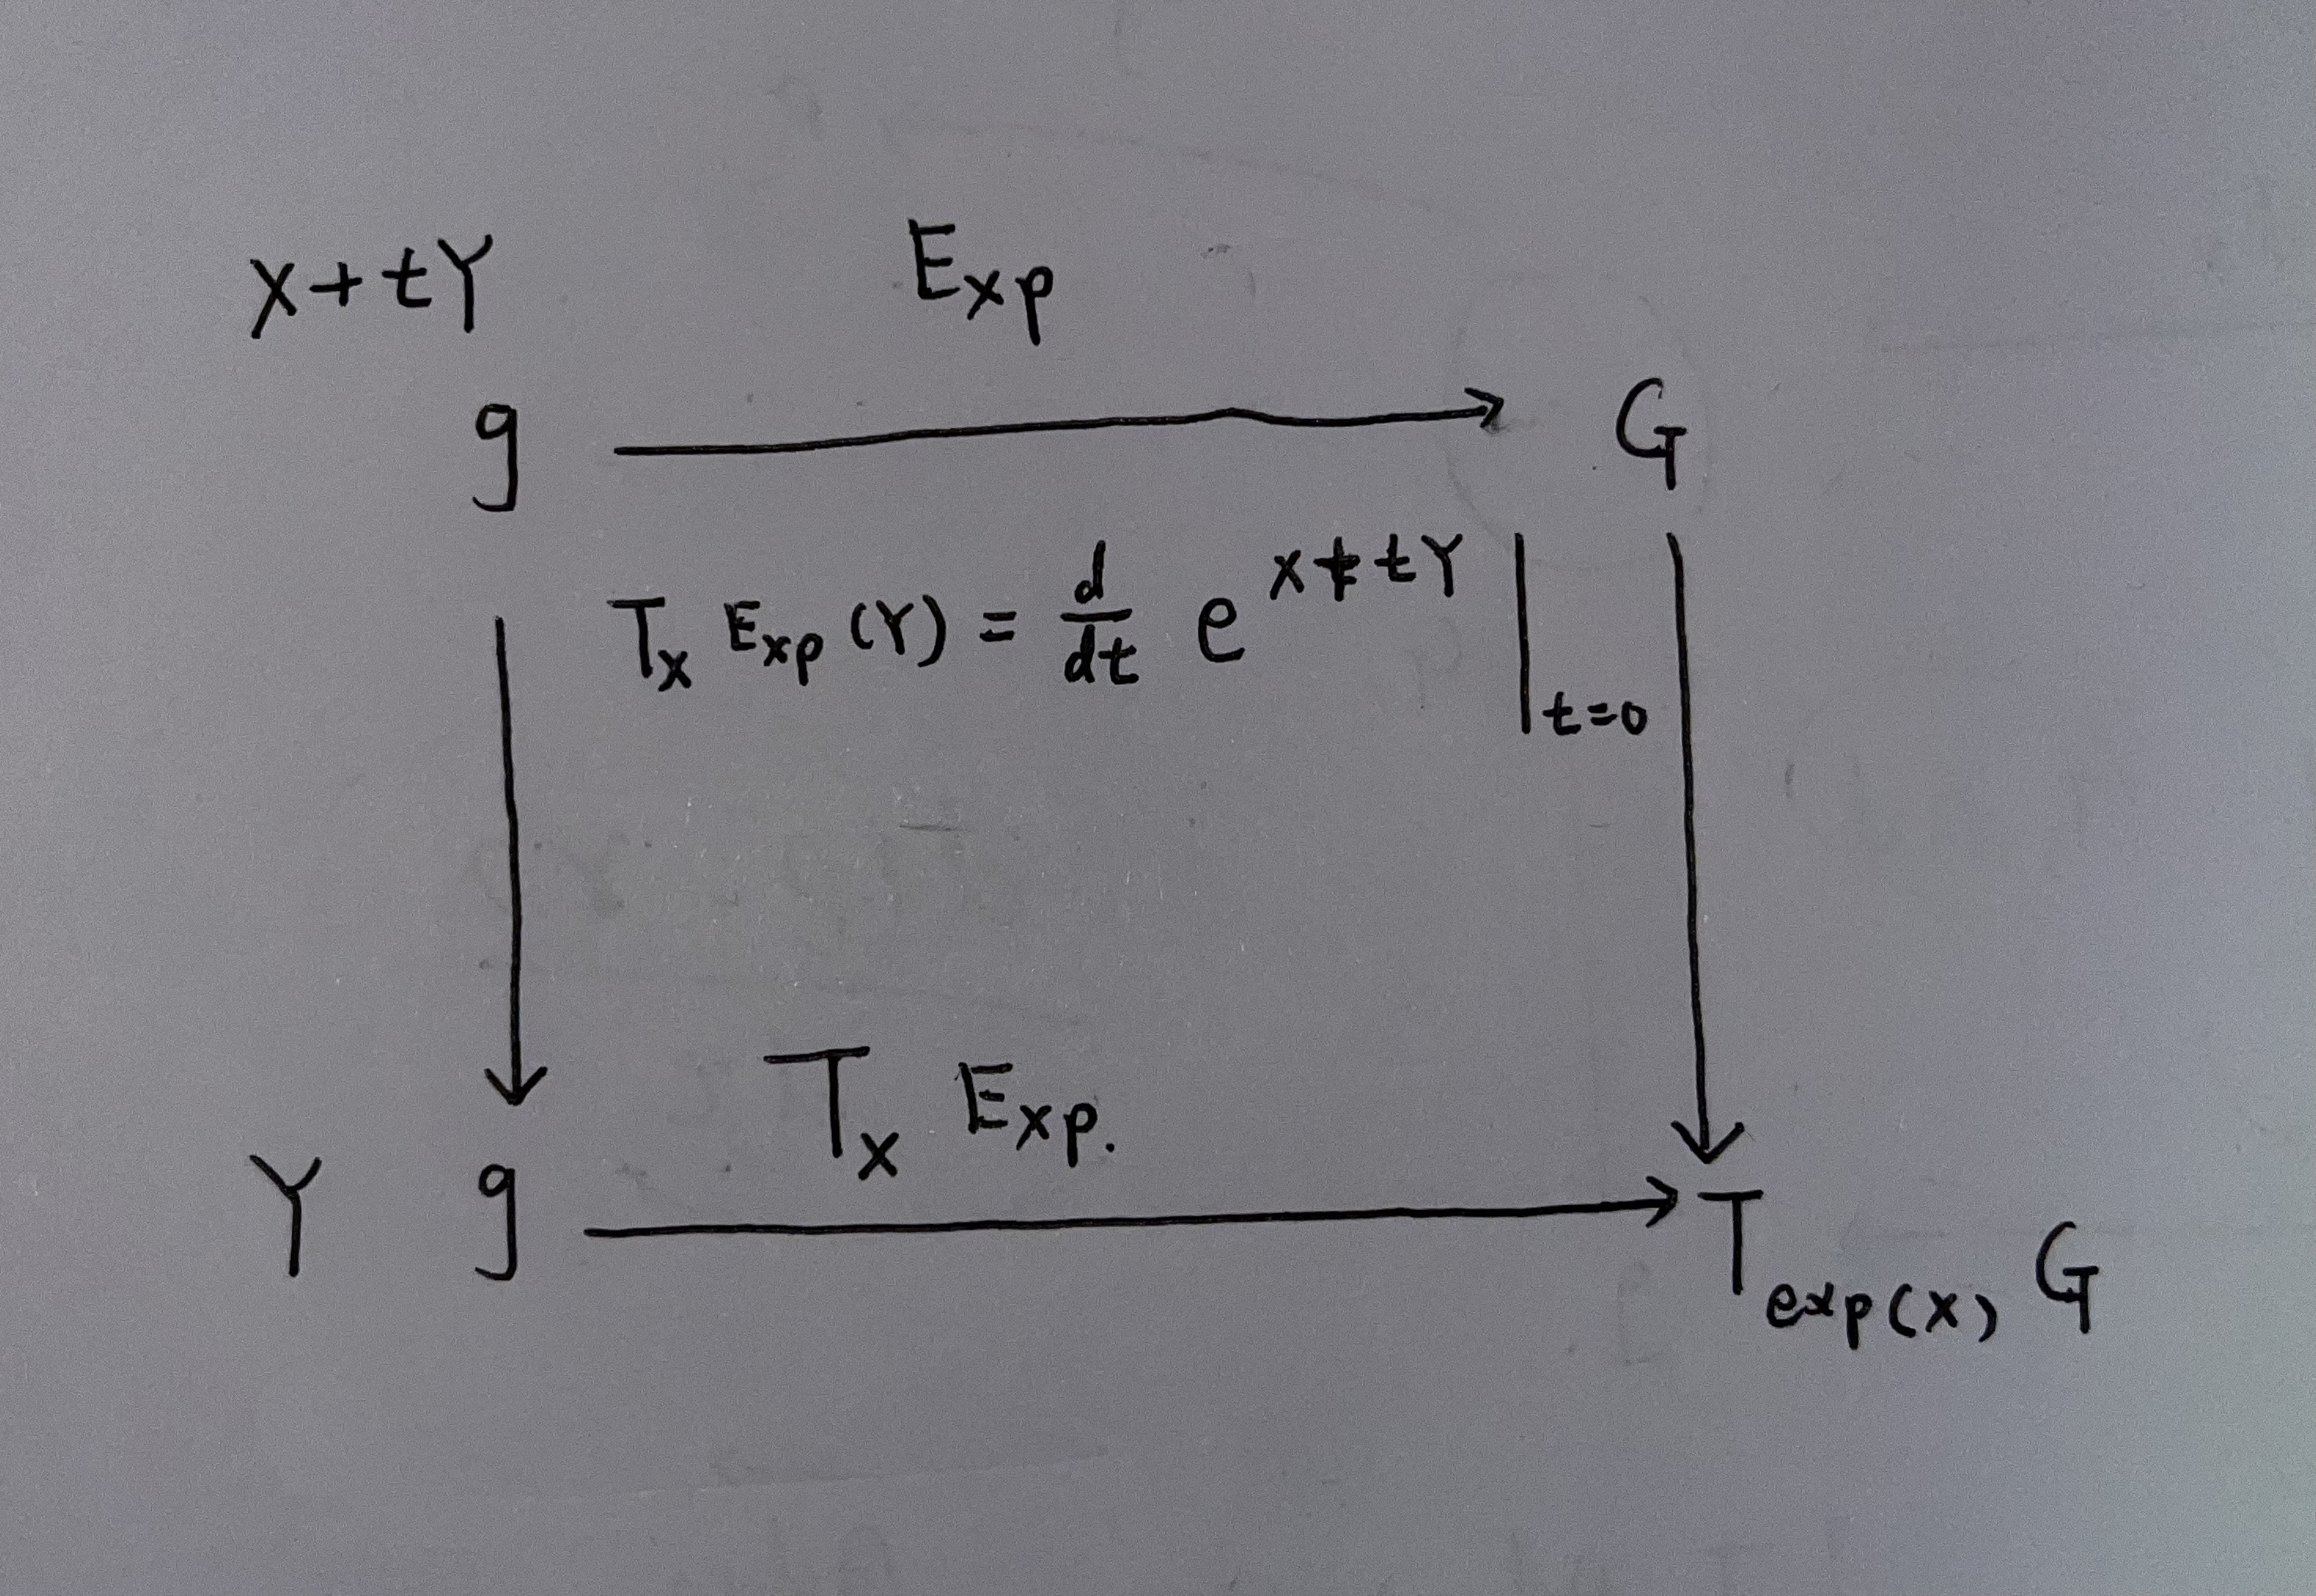 X+tY
Exp
g ⟶ G
T_X Exp (Y) = d/dt e^{X+tY} |_{t=0}
T_X Exp.
Y g ⟶ T_{exp(X)} G